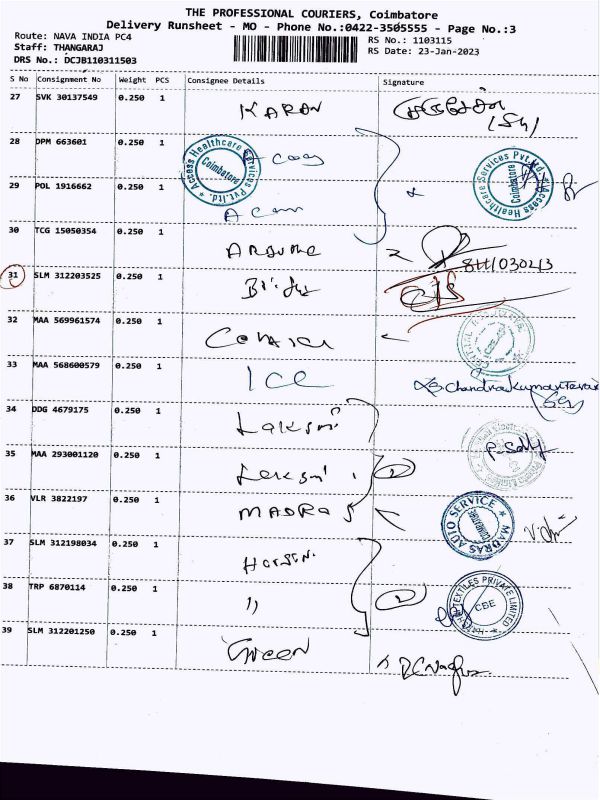 THE PROFESSIONAL COURIERS, Coimbatore
Delivery Runsheet - MO - Phone No.:0422-3505555 - Page No.:3
Route: NAVA INDIA PC4
RS No.: 1103115
Staff: THANGARAJ
RS Date: 23-Jan-2023
DRS No.: DCJB110311503
S No Consignment No Weight PCS Consignee Details Signature
27 SVK 30137549 0.250 1 KARAN
28 DPM 663601 0.250 1
Access Healthcare Services Pvt.Ltd. Coimbatore
Access Healthcare Services Pvt.Ltd. Coimbatore
29 POL 1916662 0.250 1
30 TCG 15050354 0.250 1
31 SLM 312203525 0.250 1
32 MAA 569961574 0.250 1
33 MAA 568600579 0.250 1 ICE
34 DDG 4679175 0.250 1 Laksmi
35 MAA 293001120 0.250 1 Laksmi
36 VLR 3822197 0.250 1 MADRAS
MADRAS AUTO SERVICE COIMBATORE
37 SLM 312198034 0.250 1
38 TRP 6870114 0.250 1 11
TEXTILES PRIVATE LIMITED CBE
39 SLM 312201250 0.250 1 Green